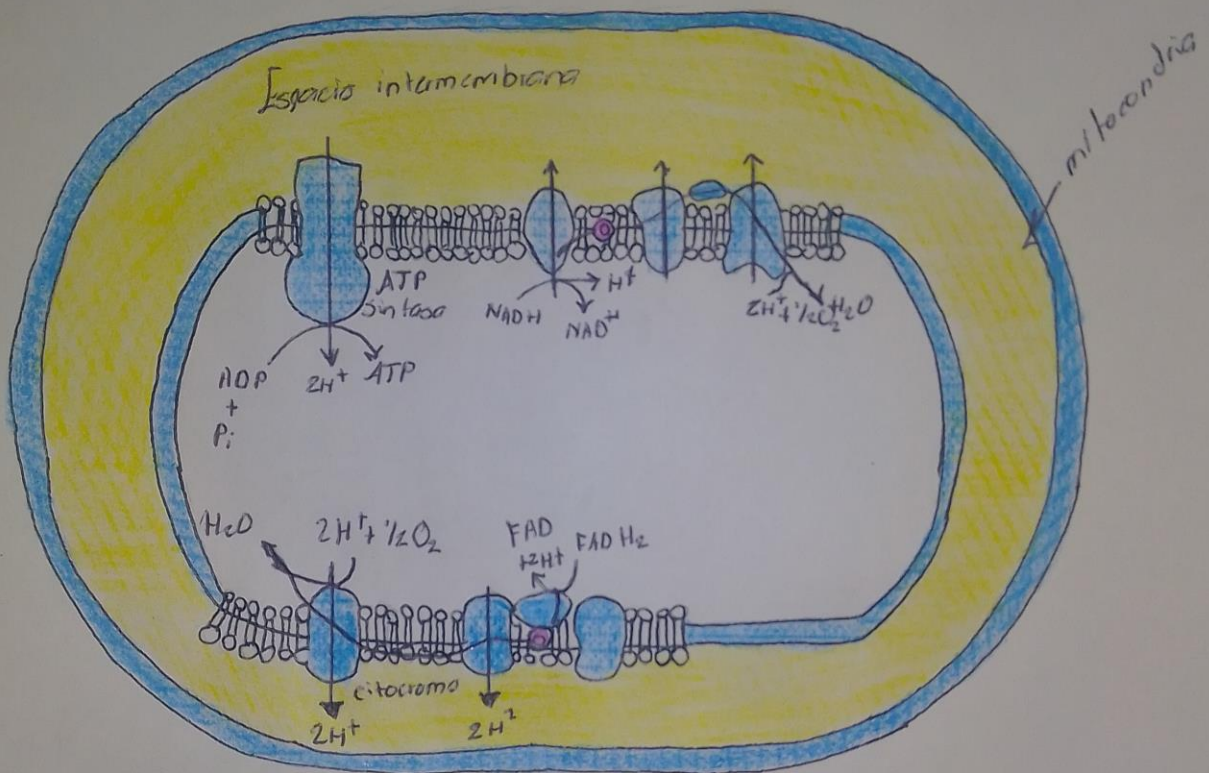 Espacio intermembrana
mitocondria
ATP
Sintasa
ADP
+
Pi
2H⁺
ATP
NADH
H⁺
NAD⁺
2H⁺+½O₂
H₂O
H₂O
2H⁺+½O₂
FAD
+2H⁺
FADH₂
citocromo
2H⁺
2H²